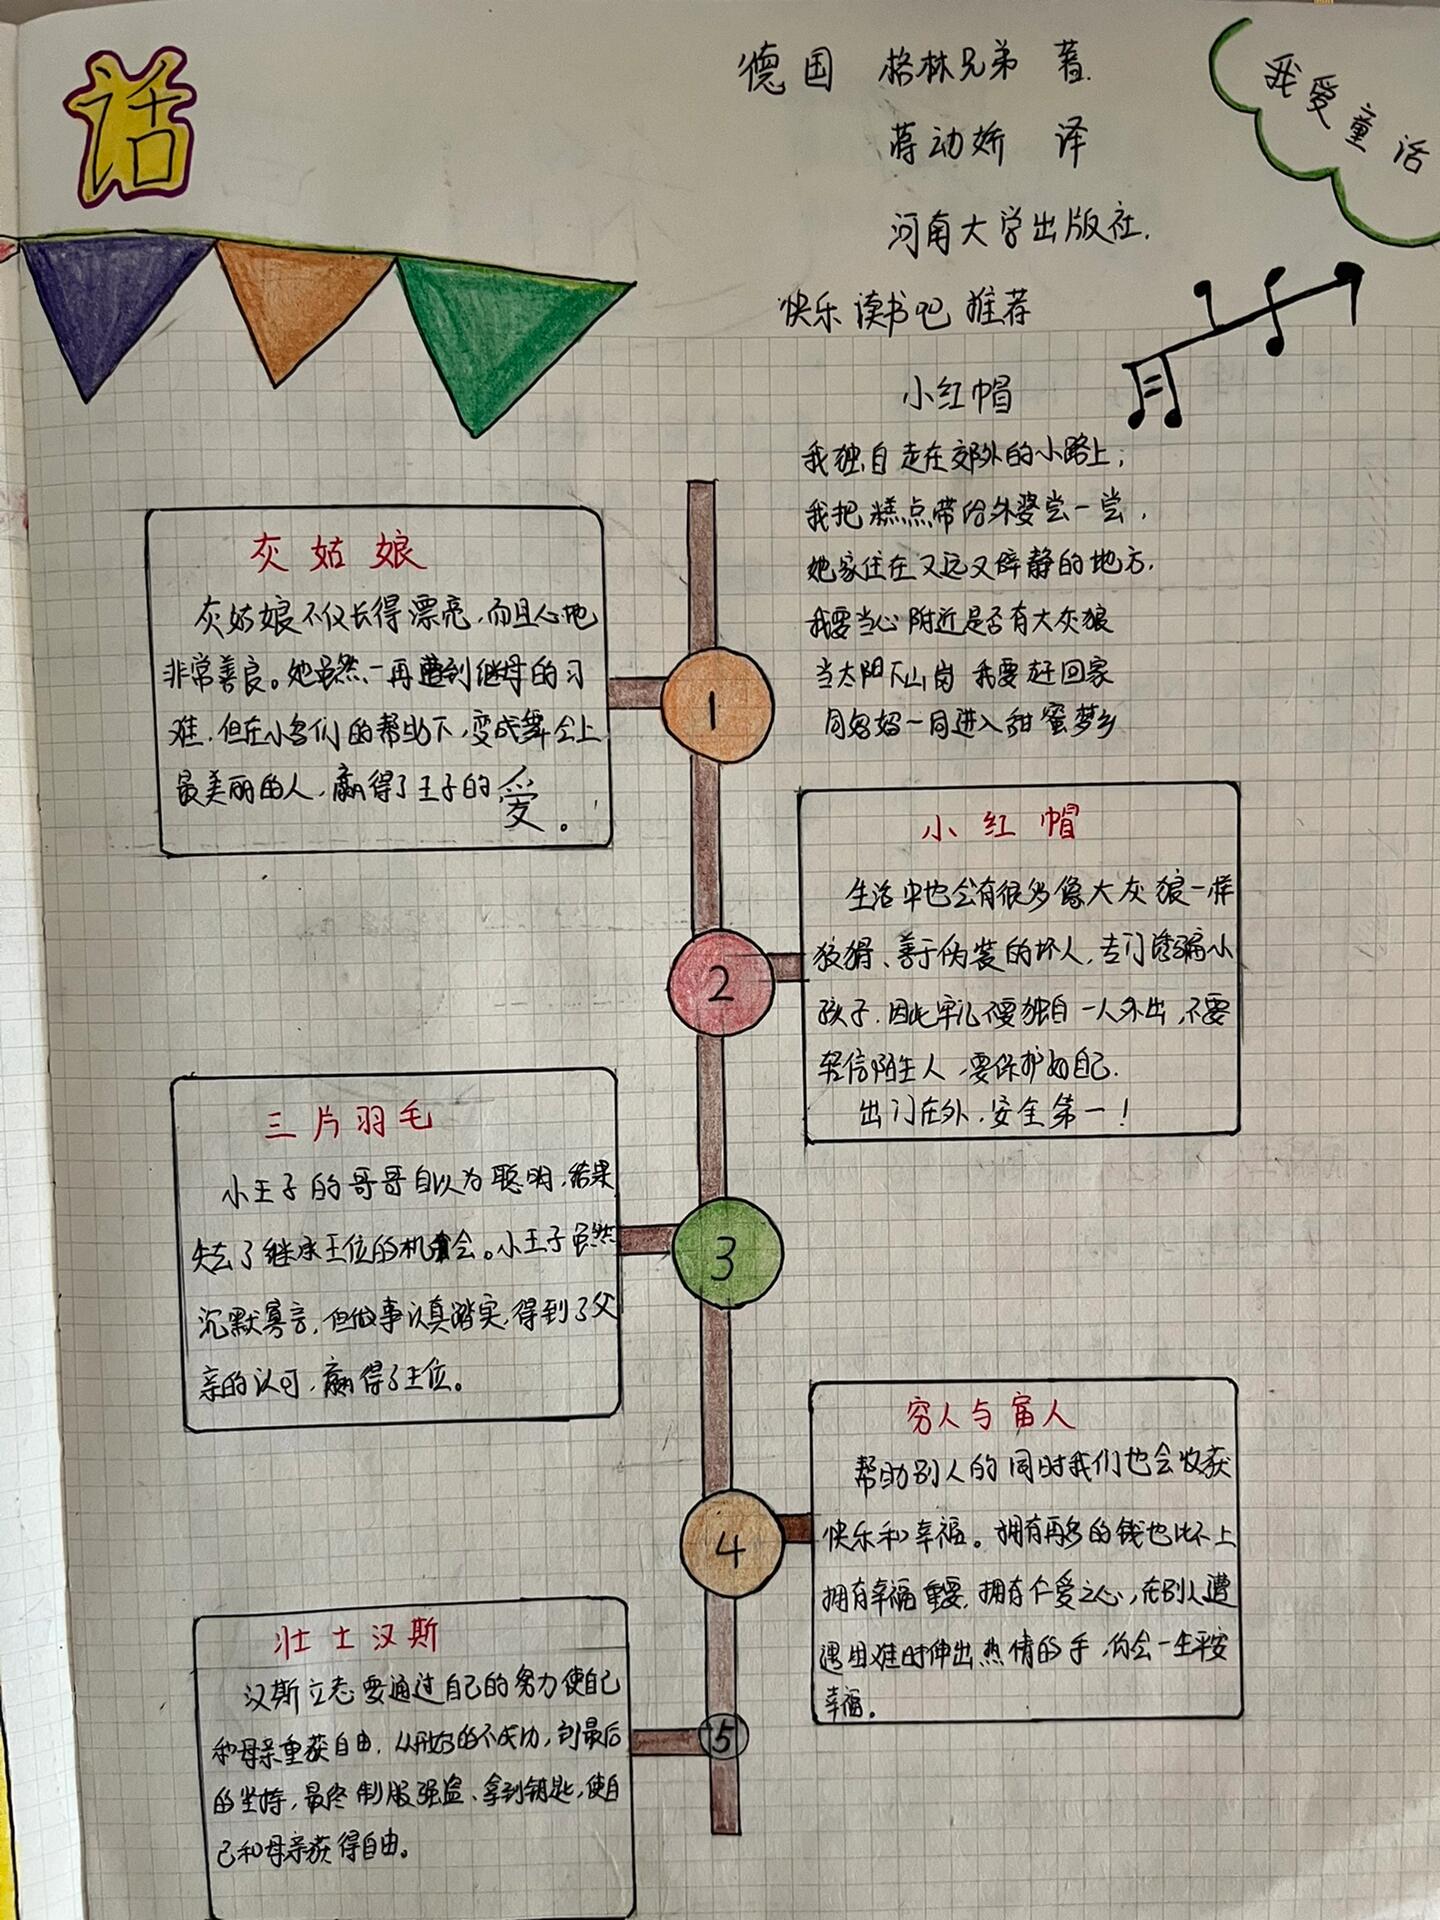 话
德国 格林兄弟 著.
蒋动娇 译
河南大学出版社.
快乐读书吧推荐
我爱童话
小红帽
我独自走在郊外的小路上,
我把糕点带给外婆尝一尝,
她家住在又远又僻静的地方.
我要当心附近是否有大灰狼
当太阳下山岗 我要赶回家
同妈妈一同进入甜蜜梦乡
1
灰姑娘
灰姑娘不仅长得漂亮,而且心地
非常善良。她虽然一再遭到继母的刁
难,但在小鸟们的帮助下,变成舞会上
最美丽的人,赢得了王子的爱。
2
小红帽
生活中也会有很多像大灰狼一样
狡猾、善于伪装的坏人,专门诱骗小
孩子.因此牢记不要独自一人外出,不要
轻信陌生人,要保护好自己.
出门在外,安全第一!
3
三片羽毛
小王子的哥哥自以为聪明,结果
失去了继承王位的机会。小王子虽然
沉默寡言,但做事认真踏实,得到了父
亲的认可,赢得了王位。
4
穷人与富人
帮助别人的同时我们也会收获
快乐和幸福。拥有再多的钱也比不上
拥有幸福重要,拥有仁爱之心,在别人遭
遇困难时伸出热情的手,你会一生平安
幸福。
5
壮士汉斯
汉斯立志要通过自己的努力使自己
和母亲重获自由,从开始的不成功,到最后
的坚持,最终制服强盗、拿到钥匙,使自
己和母亲获得自由。